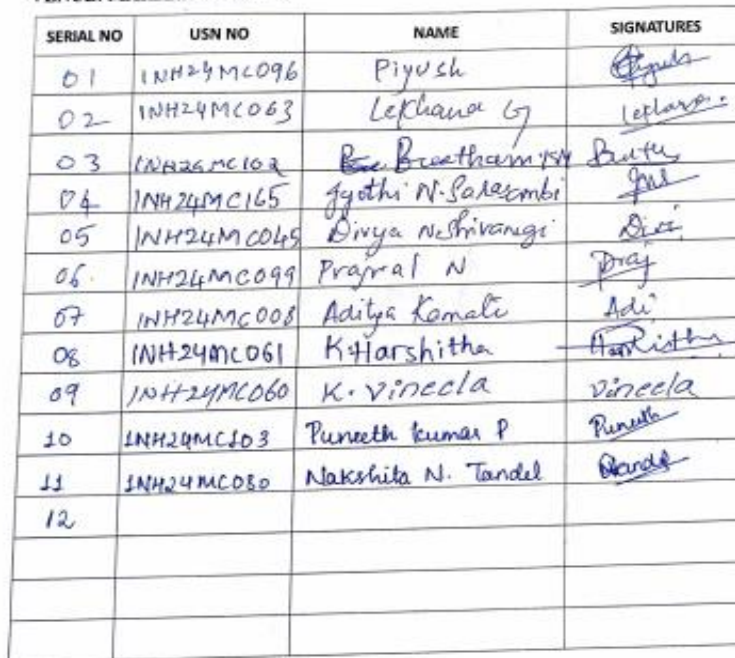 SERIAL NO USN NO NAME SIGNATURES
01 1NH24MC096 Piyush Piyush
02 1NH24MC063 Lekhana G Lekhana
03 1NH24MC102 Preetham
04 1NH24MC165 Jyothi N. Sarasambi
05 1NH24MC045 Divya N Shivangi Divi
06 1NH24MC099 Prajval N Praj
07 1NH24MC008 Aditya Kamati Adi
08 1NH24MC061 K. Harshitha Harshitha
09 1NH24MC060 K. Vineela Vineela
10 1NH24MC103 Puneeth kumar P Puneeth
11 1NH24MC080 Nakshita N. Tandel Nandel
12